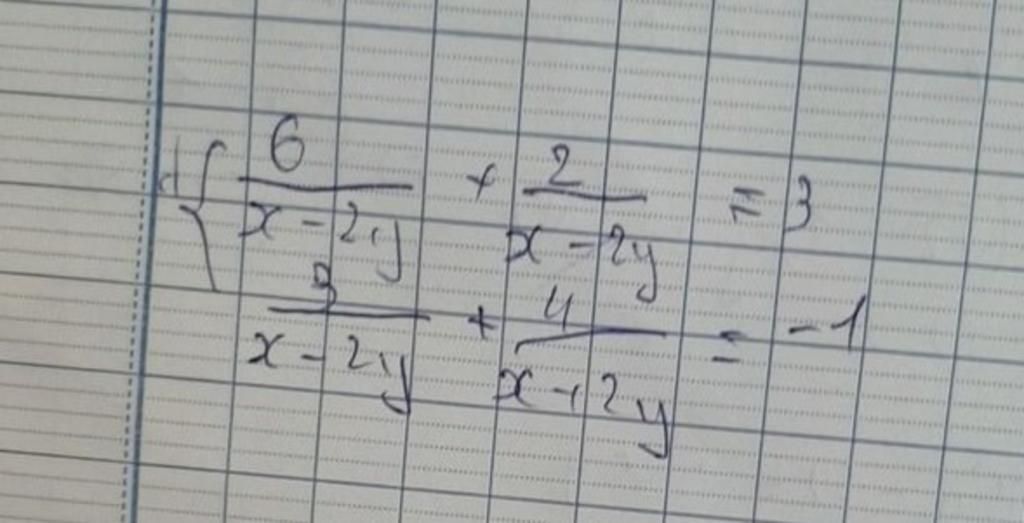 d) { 6/(x - 2y) + 2/(x - 2y) = 3
3/(x - 2y) + 4/(x + 2y) = -1